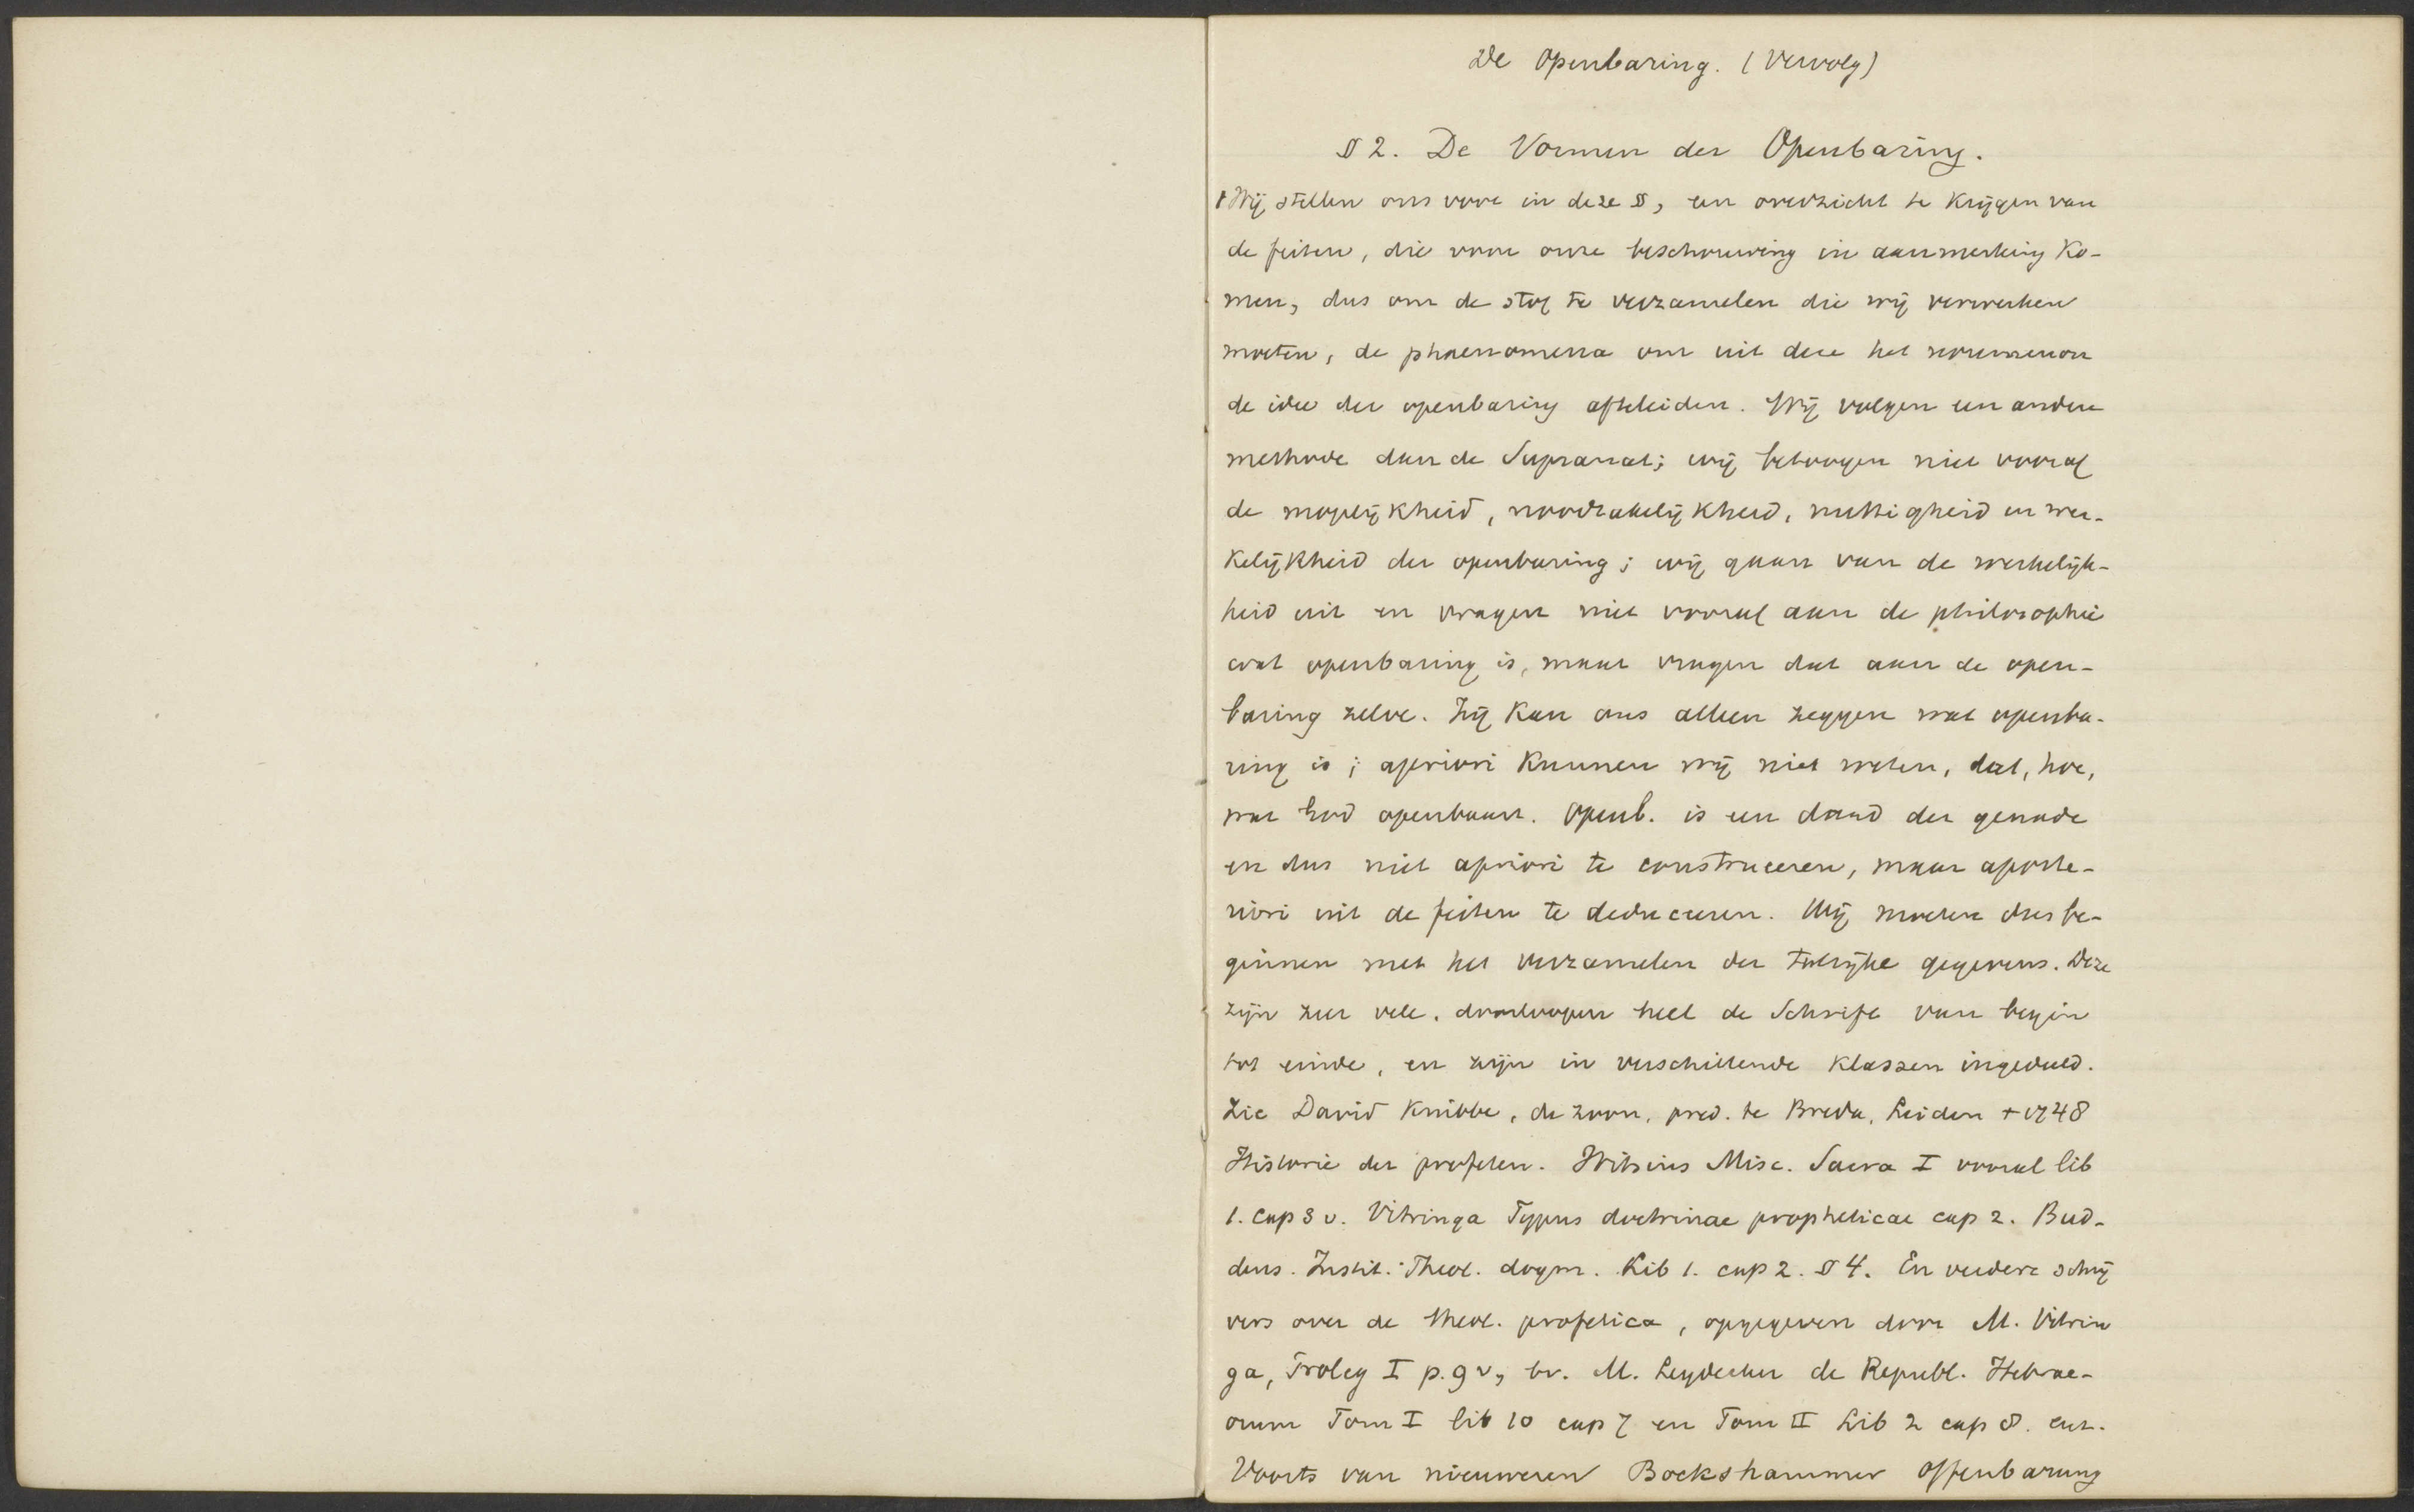 De Openbaring. (Vervolg)
§ 2. De Vormen der Openbaring.
1 Wij stellen ons voor in deze §, een overzicht te krijgen van
de feiten, die voor onze beschouwing in aanmerking ko-
men, dus om de stof te verzamelen die wij verwerken
moeten, de phaenomena om uit deze het noumenon
de idee der openbaring afteleiden. Wij volgen een andere
methode dan de Supranat; wij betoogen niet vooraf
de mogelijkheid, noodzakelijkheid, nuttigheid en wer-
kelijkheid der openbaring; wij gaan van de werkelijk-
heid uit en vragen niet vooraf aan de philosophie
wat openbaring is, maar vragen dat aan de open-
baring zelve. Zij kan ons alleen zeggen wat openba-
ring is; apriori kunnen wij niet weten, dat, hoe,
wat God openbaart. Openb. is een daad der genade
en dus niet apriori te construceren, maar aposte-
riori uit de feiten te deduceeren. Wij moeten dus be-
ginnen met het verzamelen der talrijke gegevens. Deze
zijn zeer vele, doorloopen heel de Schrift van begin
tot einde, en zijn in verschillende klassen ingedeeld.
Zie David Knibbe, de zoon, pred. te Breda, Leiden + 1748
Historie der profeten. Witsius Misc. Sacra I vooral lib
1. cap 3 v. Vitringa Typus doctrinae propheticae cap 2. Bud-
deus. Instit. Theol. dogm. Lib 1. cap 2. § 4. En verdere schrij
vers over de theol. profetica, opgegeven door M. Vitrin
ga, Proleg I p. 9 v, bv. M. Leydecker de Republ. Hebrae-
orum Tom I lib 10 cap 7 en Tom II Lib 2 cap 8. enz.
Voorts van nieuweren Bockshammer Offenbarung